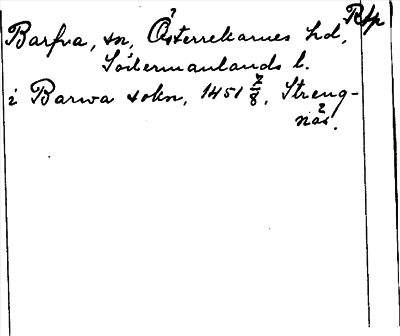 Rkp
Barfva, sn, Österrekarnes hd,
Södermanlands l.
i Barwa sokn, 1451 7/8, Streng-
näs.